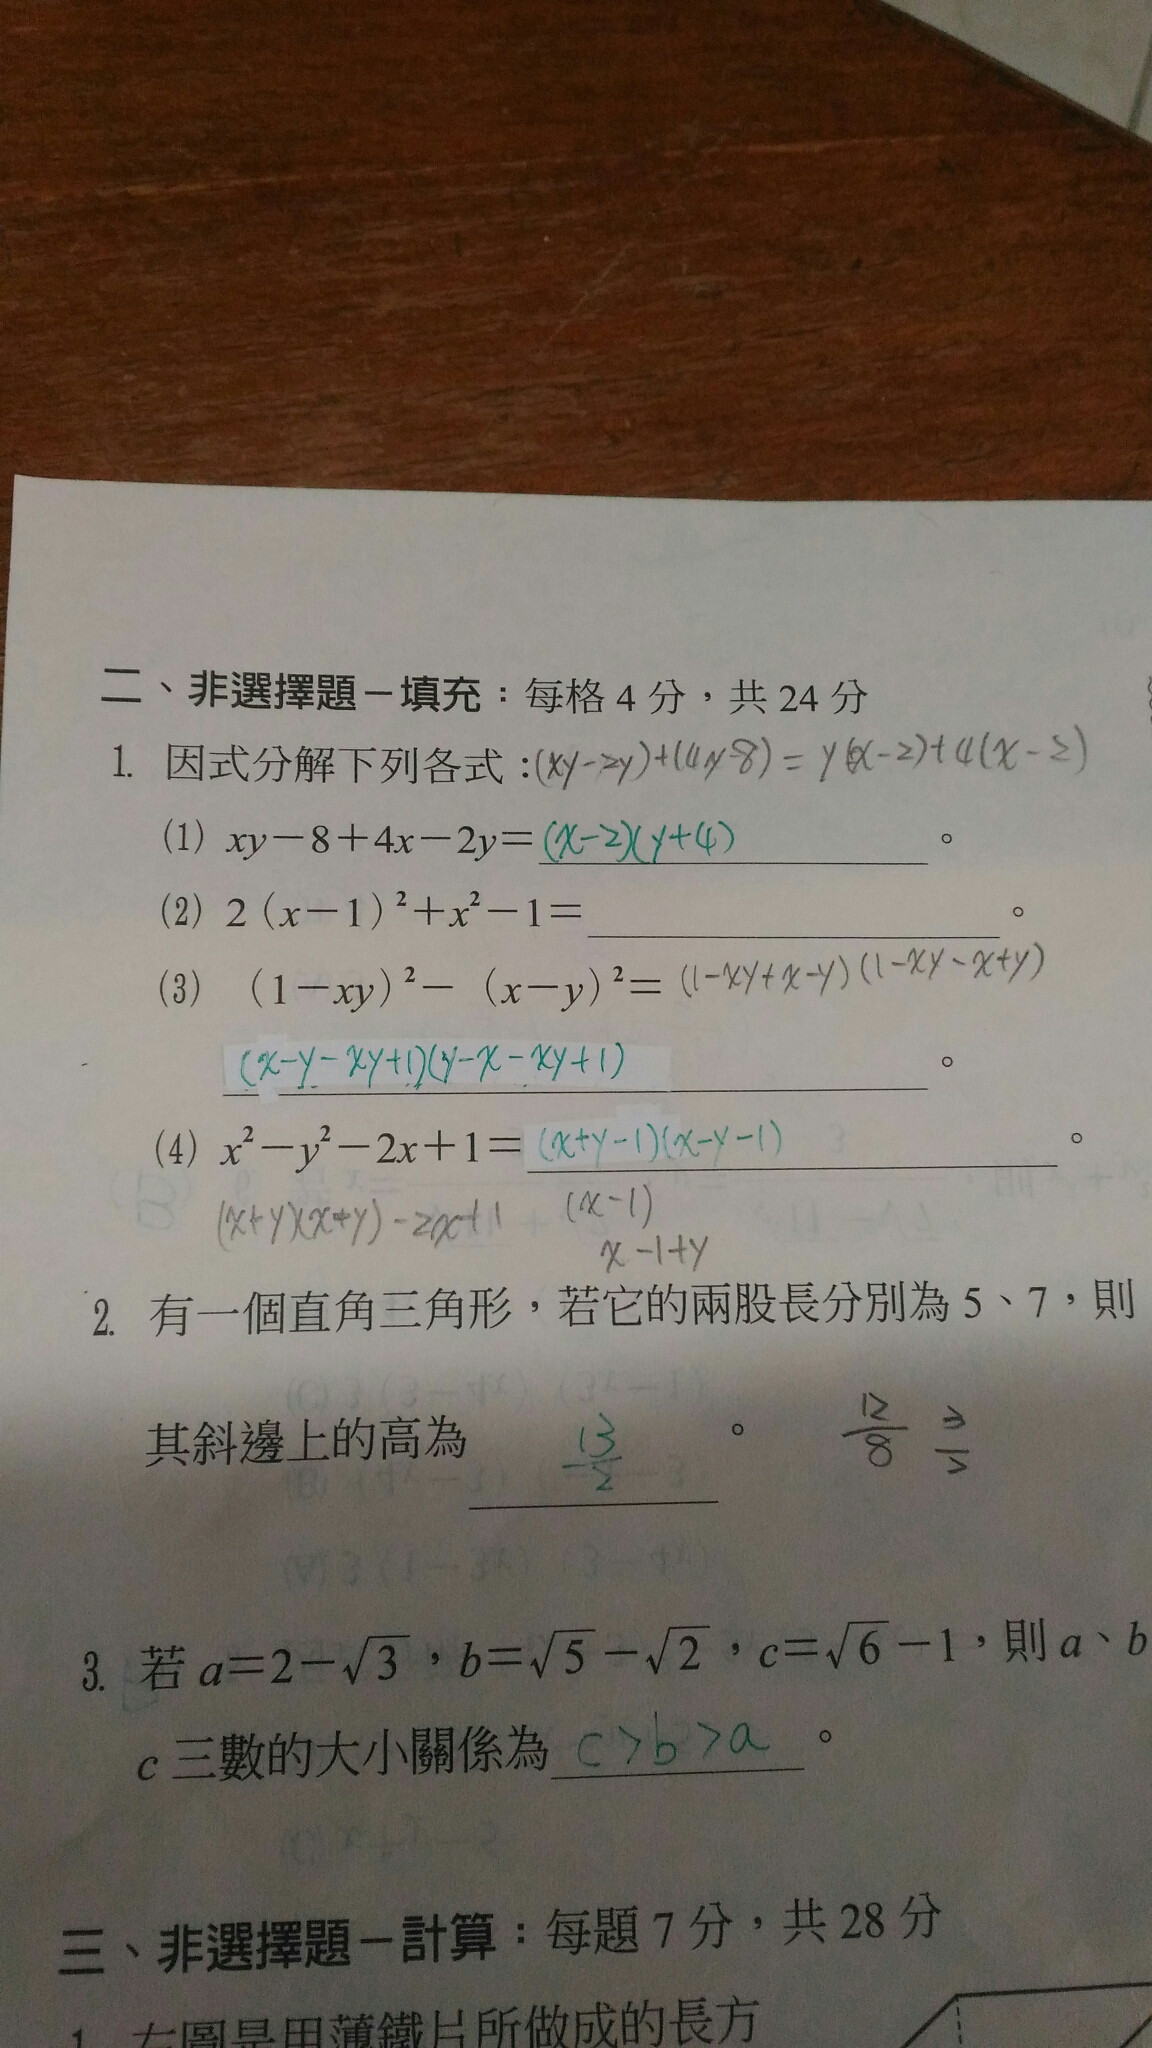 二、非選擇題－填充：每格4分，共24分
1. 因式分解下列各式：(xy-2y)+(4x-8)=y(x-2)+4(x-2)
(1) xy－8＋4x－2y＝(x-2)(y+4)。
(2) 2（x－1）²＋x²－1＝。
(3) （1－xy）²－（x－y）²＝(1-xy+x-y)(1-xy-x+y)
(x-y-xy+1)(y-x-xy+1)。
(4) x²－y²－2x＋1＝(x+y-1)(x-y-1)。
(x+y)(x+y)-2x+1 (x-1)
x-1+y
2. 有一個直角三角形，若它的兩股長分別為5、7，則
其斜邊上的高為 13/2 。 12/8
3. 若a＝2－√3，b＝√5－√2，c＝√6－1，則a、b
c三數的大小關係為 c>b>a 。
三、非選擇題－計算：每題7分，共28分
1. 左圖是用薄鐵片所做成的長方